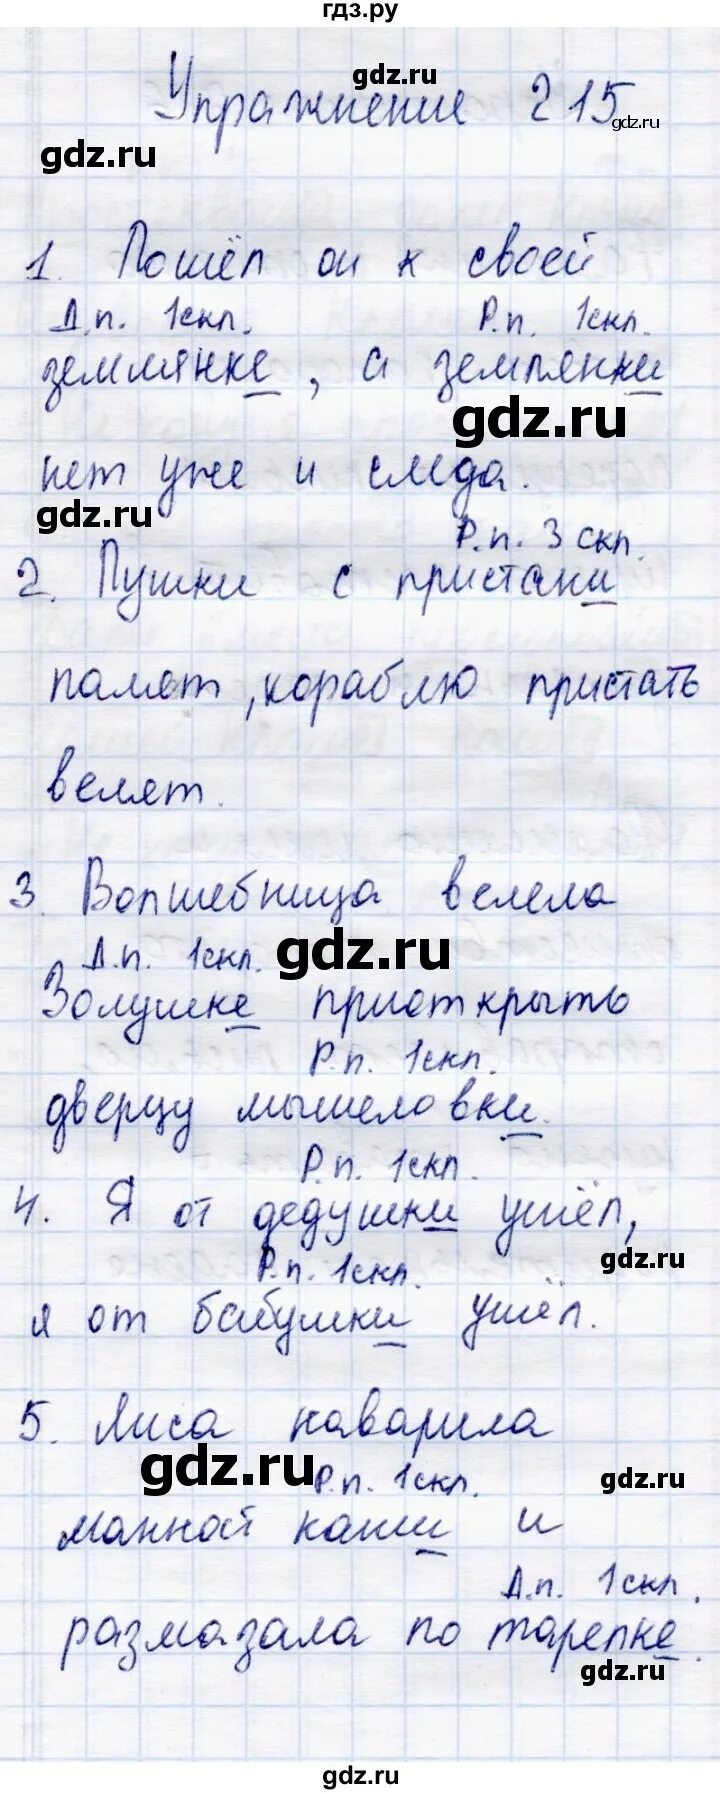 гдз.ру
gdz.ru
Упражнение 215
gdz.ru
gdz.ru
1. Пошёл он к своей
Д.п. 1скл. Р.п. 1скл.
землянке, а землянки
gdz.ru
нет уже и следа.
gdz.ru
Р.п. 3 скл.
2. Пушки с пристани
палят, кораблю пристать
велят.
3. Волшебница велела
Д.п. 1скл.
gdz.ru
Золушке приоткрыть
Р.п. 1скл.
дверцу мышеловки.
Р.п. 1скл.
4. Я от дедушки ушёл,
gdz.ru
Р.п. 1скл.
я от бабушки ушёл.
5. Лиса наварила
gdz.ru
Р.п. 1скл.
gdz.ru
манной каши и
Д.п. 1скл.
размазала по тарелке.
gdz.ru
gdz.ru